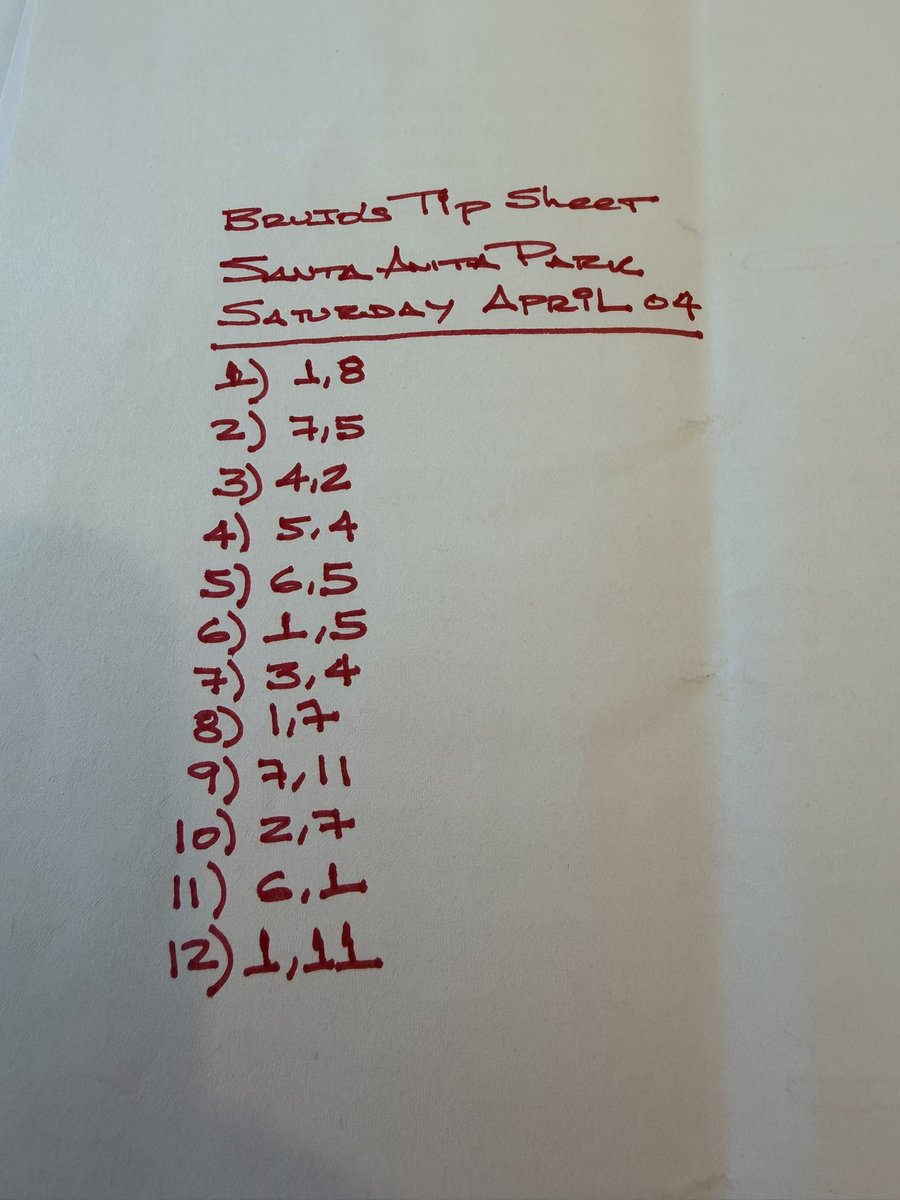 Brujo's Tip Sheet
Santa Anita Park
Saturday April 04
1) 1,8
2) 7,5
3) 4,2
4) 5,4
5) 6,5
6) 1,5
7) 3,4
8) 1,7
9) 7,11
10) 2,7
11) 6,1
12) 1,11